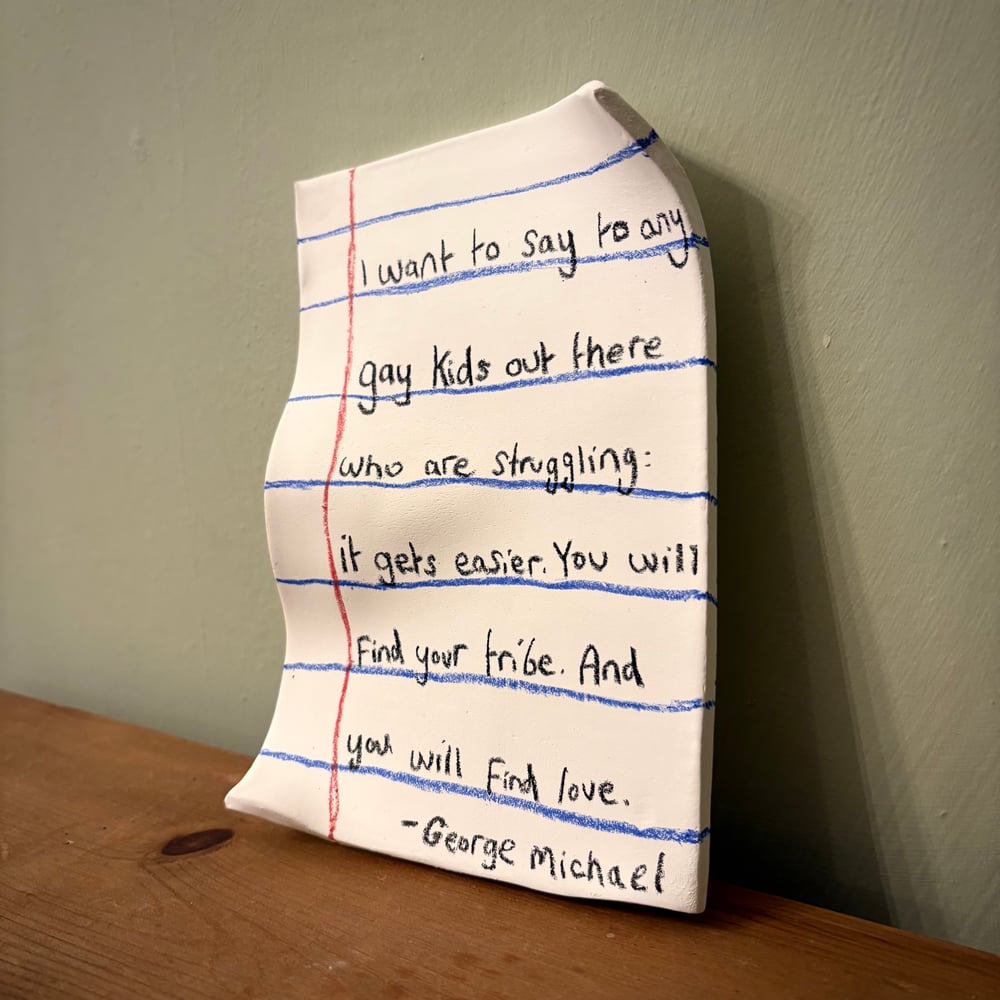 I want to say to any
gay kids out there
who are struggling:
it gets easier. You will
Find your tribe. And
you will Find love.
-George Michael